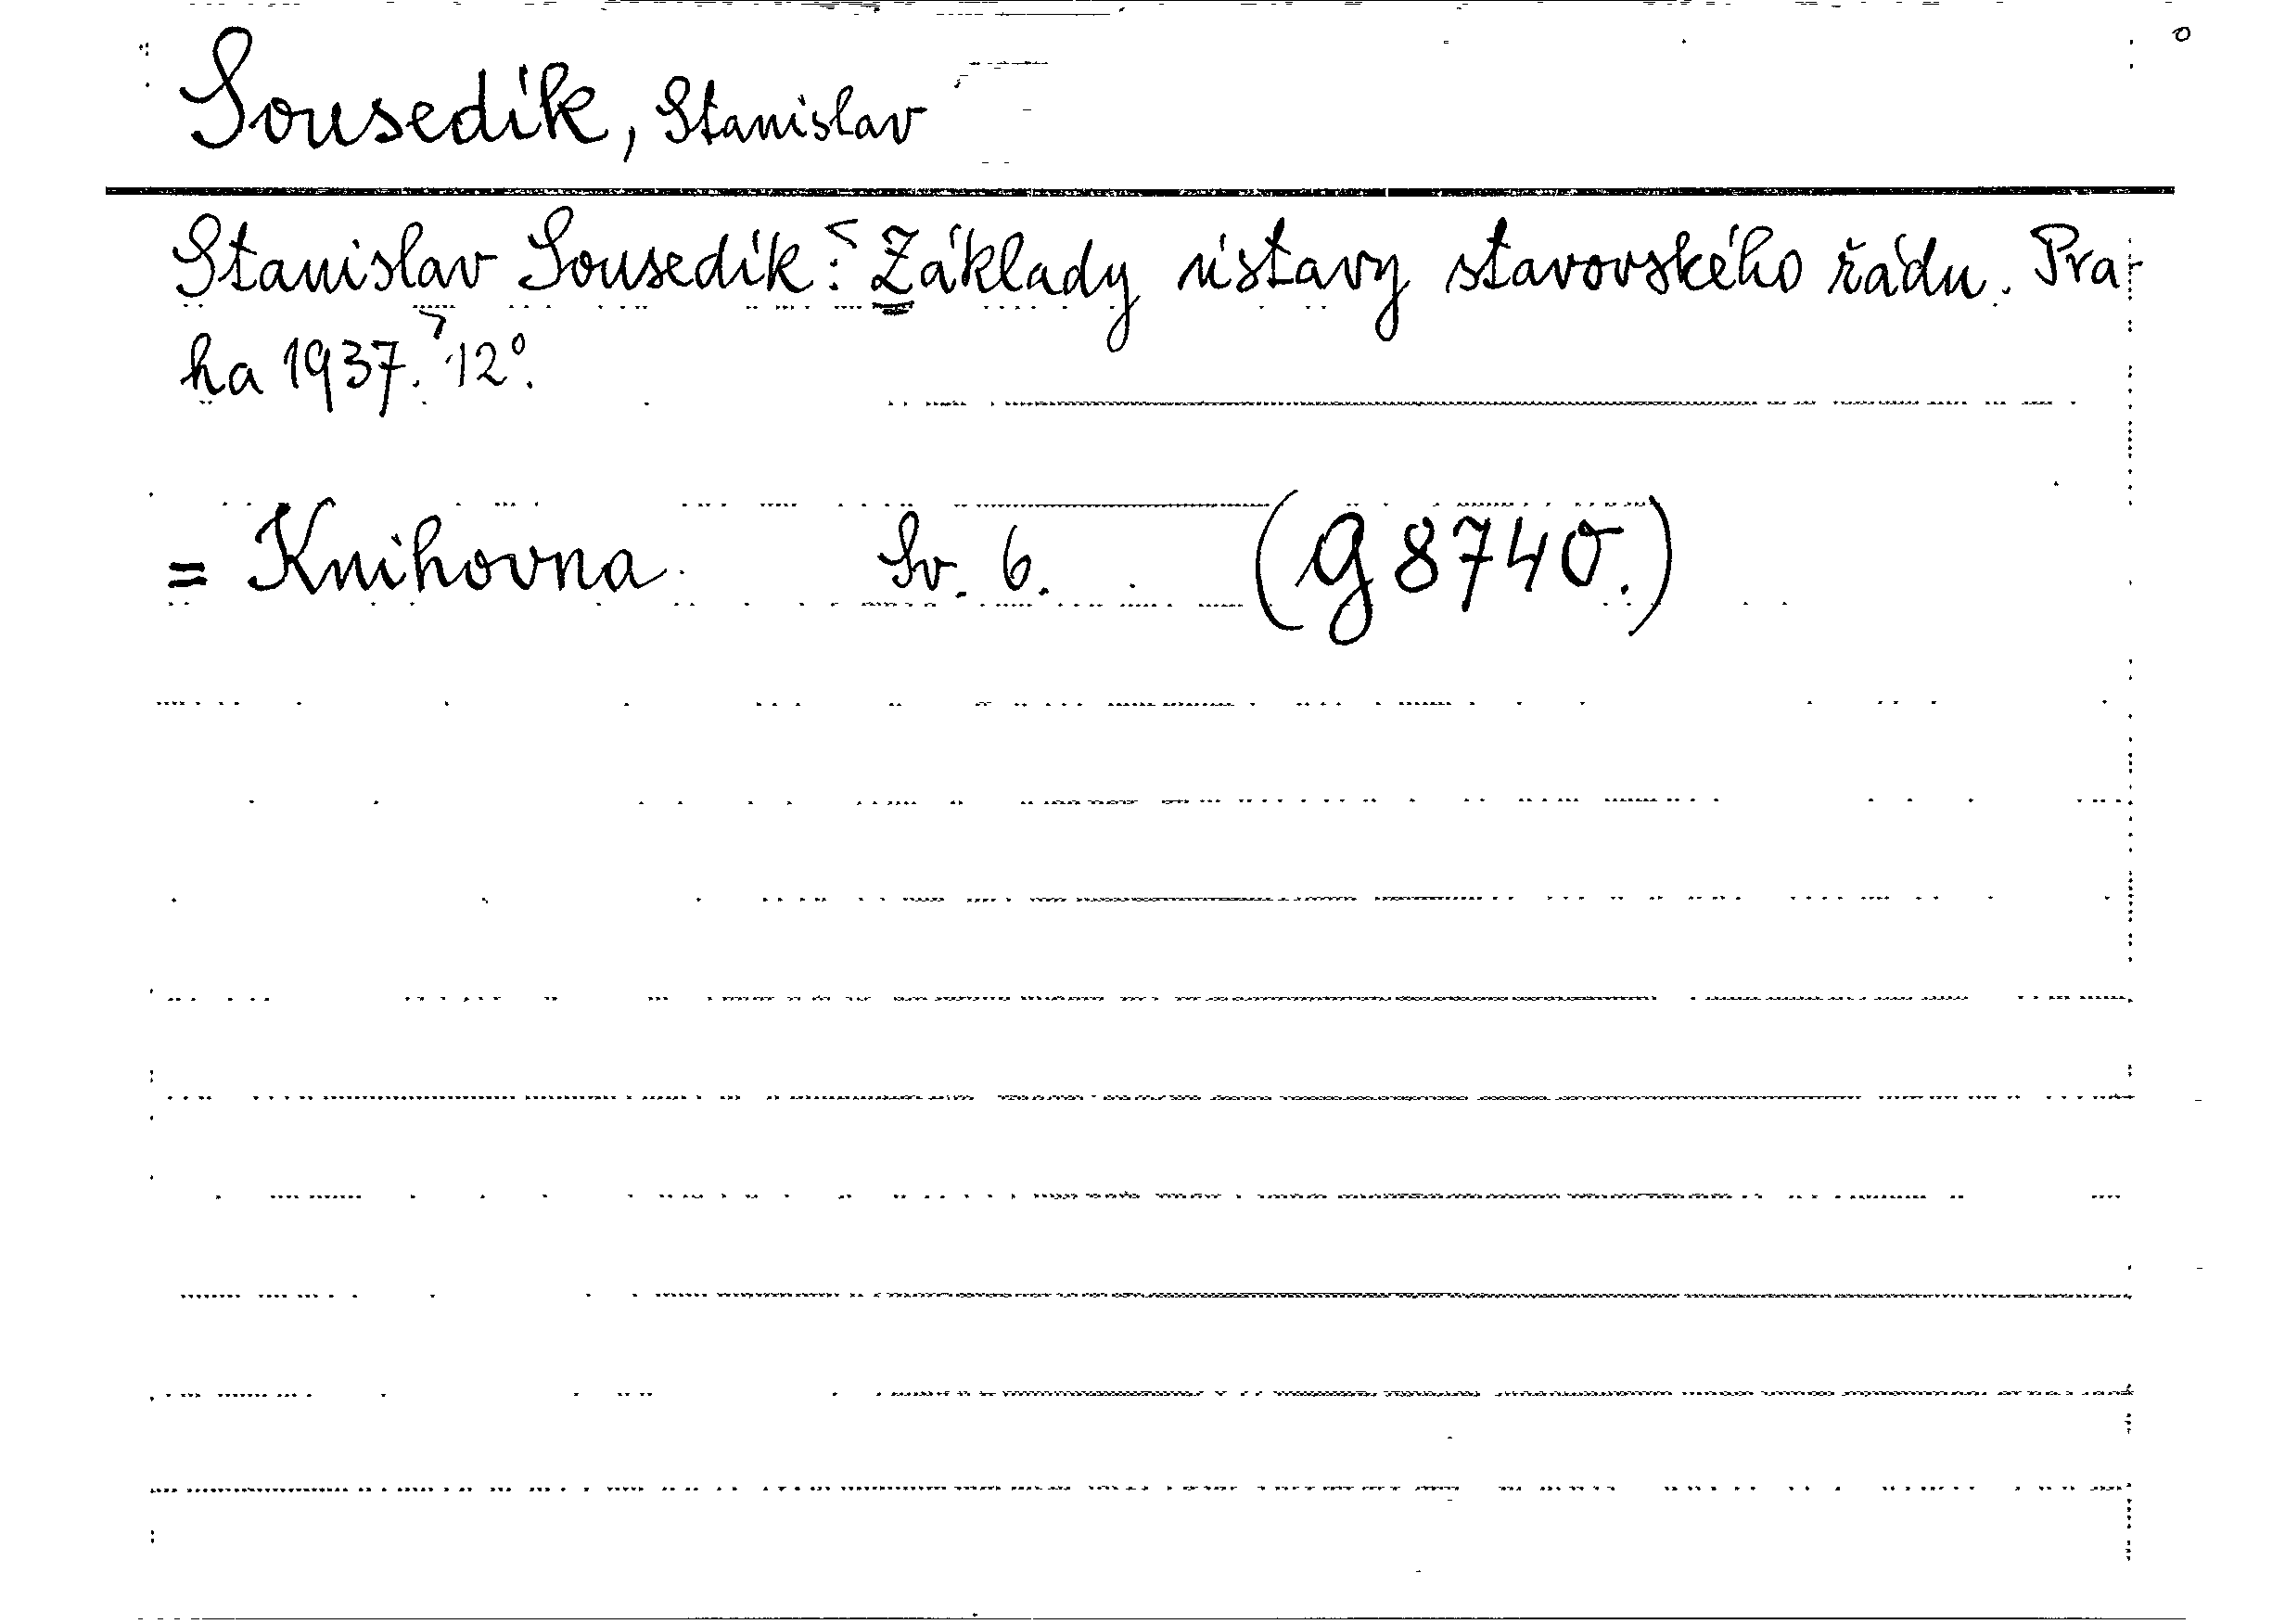 Sousedík, Stanislav
Stanislav Sousedík: < Základy ústavy stavovského řádu. Pra-
ha 1937. > 12°.
= Knihovna Sv. 6. (G 8740.)